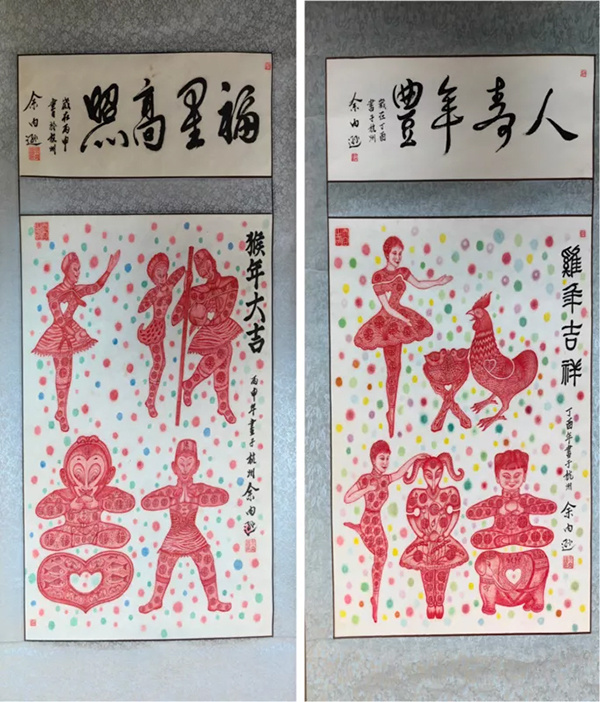 福星高照
歲在丙申
書於杭州
余
猴年大吉
丙申年畫于杭州 余
人壽年豐
歲在丁酉
書于杭州
余
雞年吉祥
丁酉年畫于杭州 余